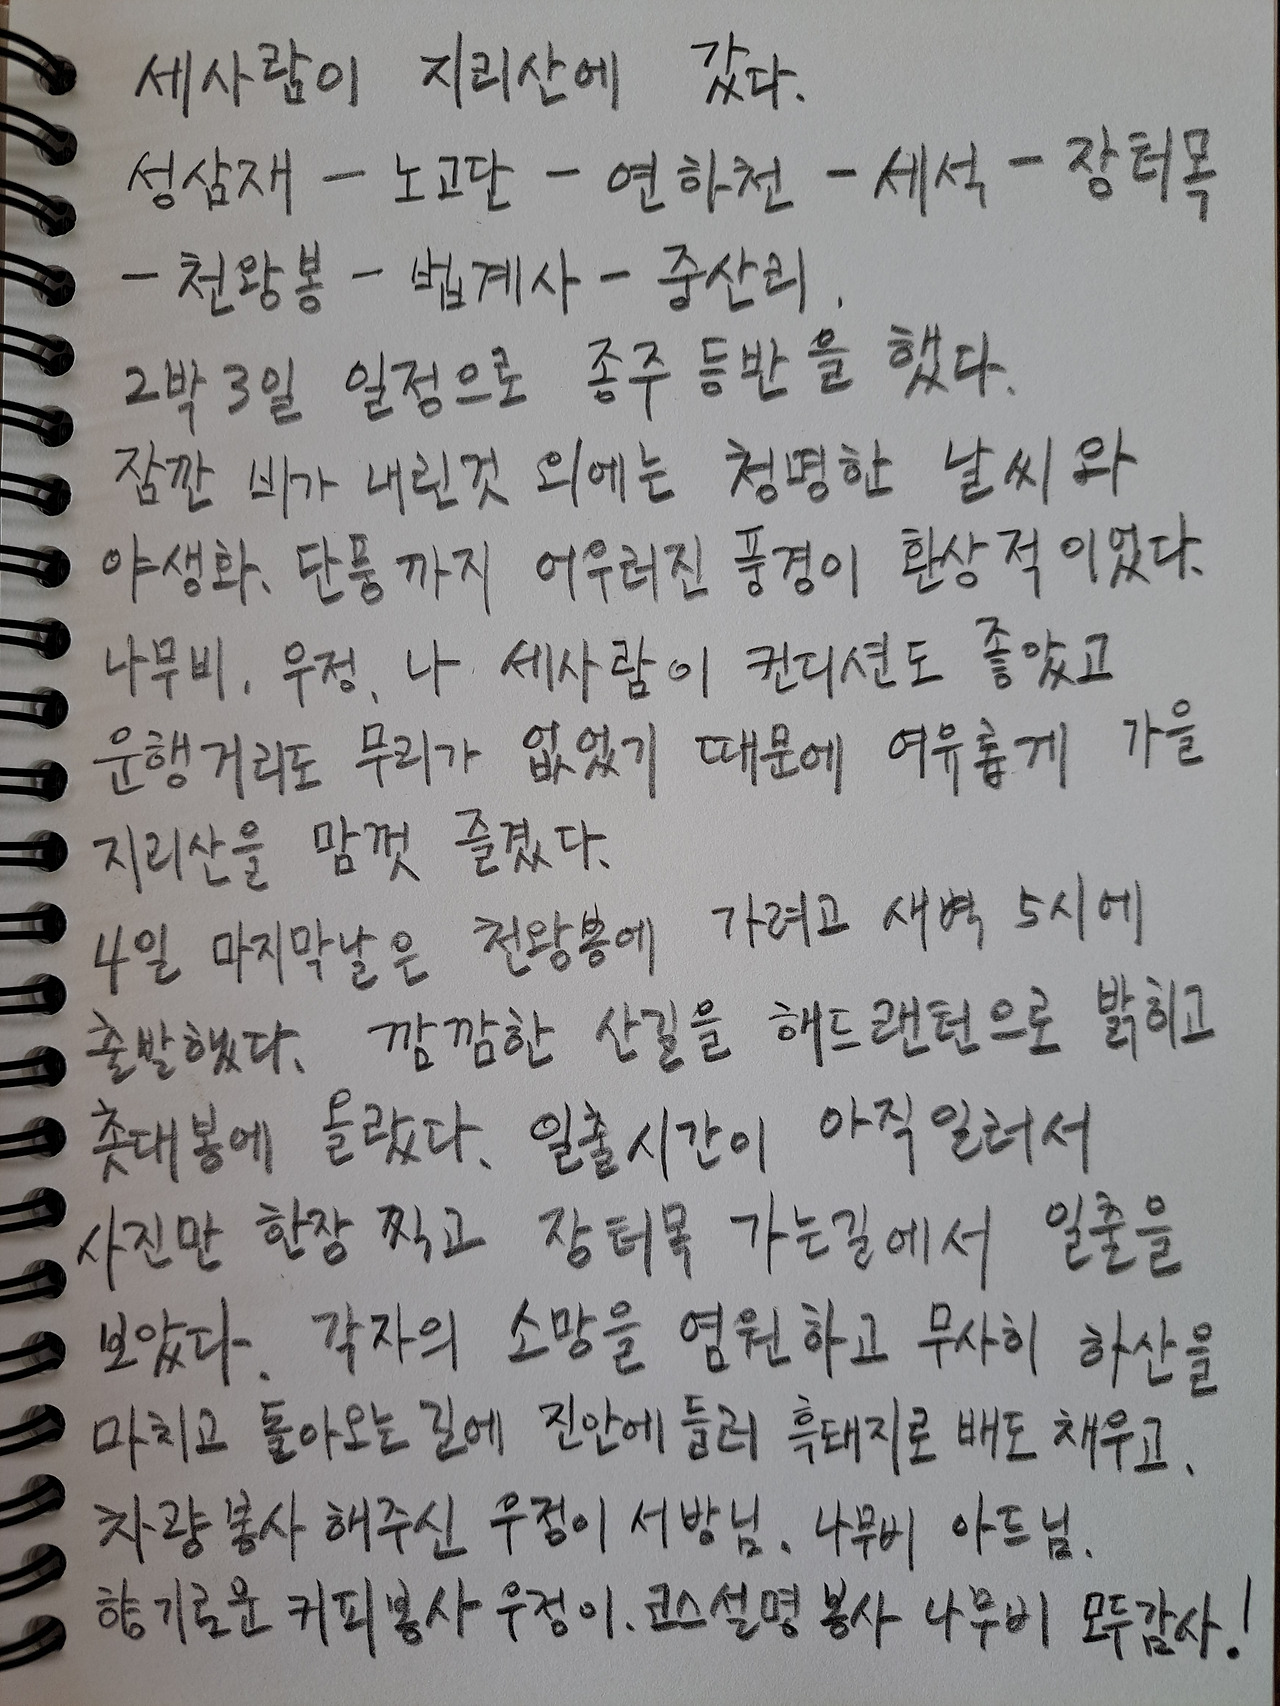 세사람이 지리산에 갔다.
성삼재 - 노고단 - 연하천 - 세석 - 장터목
- 천왕봉 - 법계사 - 중산리.
2박 3일 일정으로 종주 등반을 했다.
잠깐 비가 내린것 외에는 청명한 날씨와
야생화, 단풍까지 어우러진 풍경이 환상적이었다.
나무비, 우정, 나 세사람이 컨디션도 좋았고
운행거리도 무리가 없었기 때문에 여유롭게 가을
지리산을 맘껏 즐겼다.
4일 마지막날은 천왕봉에 가려고 새벽 5시에
출발했다. 깜깜한 산길을 해드랜턴으로 밝히고
촛대봉에 올랐다. 일출시간이 아직일러서
사진만 한장 찍고 장터목 가는길에서 일출을
보았다. 각자의 소망을 염원하고 무사히 하산을
마치고 돌아오는 길에 진안에 들러 흑돼지로 배도 채우고,
차량봉사 해주신 우정이 서방님, 나무비 아드님.
향기로운 커피봉사 우정이. 코스설명 봉사 나무비 모두감사!